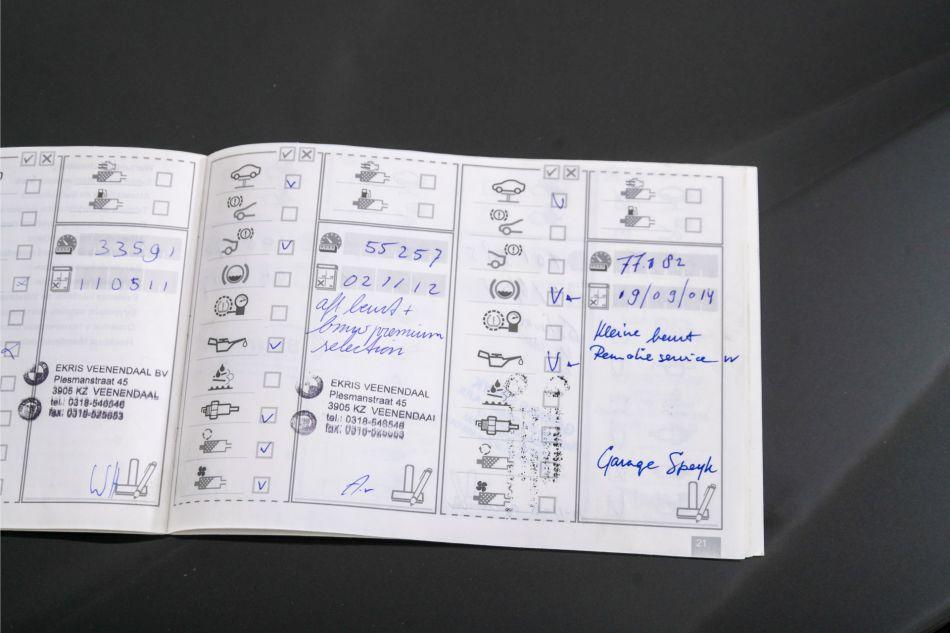 33591
110511
EKRIS VEENENDAAL BV
Plesmanstraat 45
3905 KZ VEENENDAAL
tel.: 0318-546546
fax: 0318-525653
WH
55257
021112
afl beurt +
bmw premium
selection
EKRIS VEENENDAAL
Plesmanstraat 45
3905 KZ VEENENDAAL
tel.: 0318-546546
fax: 0318-525653
77.182
19/09/014
Kleine beurt
Remolie service
Garage Speyk
21